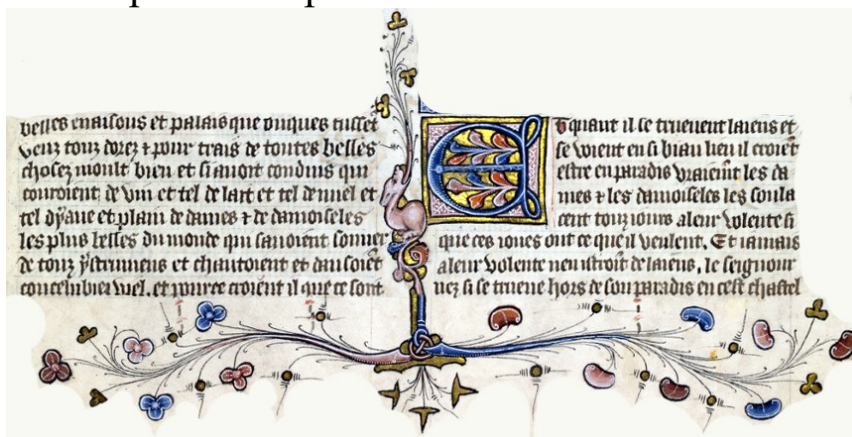 belles maisons et palais que onques fusset
veuz touz dorez & pour trais de toutes belles
choses moult bien et si auoit condus qui
couroient de vin et tel de lait et tel de miel et
tel dyaue et plain de dames & de damoiseles
les plus belles du monde qui sauoient sonner
de touz ystrumens et chantoient et dansoiet
con celubier uiel. et pource croient il que ce sont
Et quant il se treuuent laiens et
se voient en si biau lieu il croiet
estre en paradis vraiemt les da
mes & les damoiseles les soula
cent touz iours a leur volente si
que ces iones ont ce que il veulent. Et iamais
a leur volente nen istroit de laiens. le seignour
uez si se treuue hors de son paradis en cest chastel